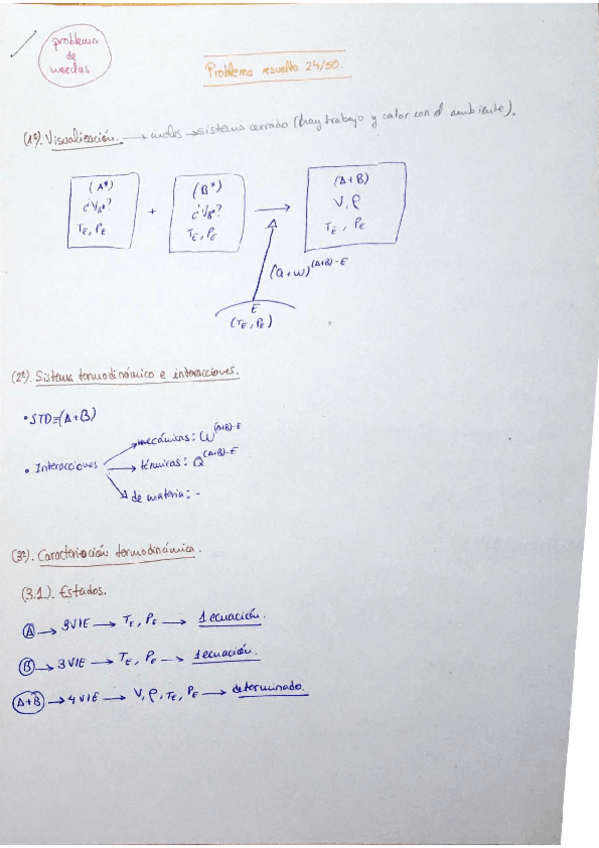 problema
de
mezclas
Problema resuelto 24/50.
(1º). Visualización. → moles → sistema cerrado (hay trabajo y calor con el ambiente).
(A*) (B*) (A+B)
¿VA*? + ¿VB*? → V, ρ
TE, PE TE, PE TE, PE
(Q+W)(A+B)-E
E
(TE, PE)
(2º). Sistema termodinámico e interacciones.
• STD=(A+B)
→ mecánicas: W(A+B)-E
• Interacciones → térmicas: Q(A+B)-E
→ de materia: -
(3º). Caracterización termodinámica.
(3.1.). Estados.
A → 3VIE → TE, PE → 1 ecuación.
B → 3VIE → TE, PE → 1 ecuación.
A+B → 4VIE → V, ρ, TE, PE → determinado.